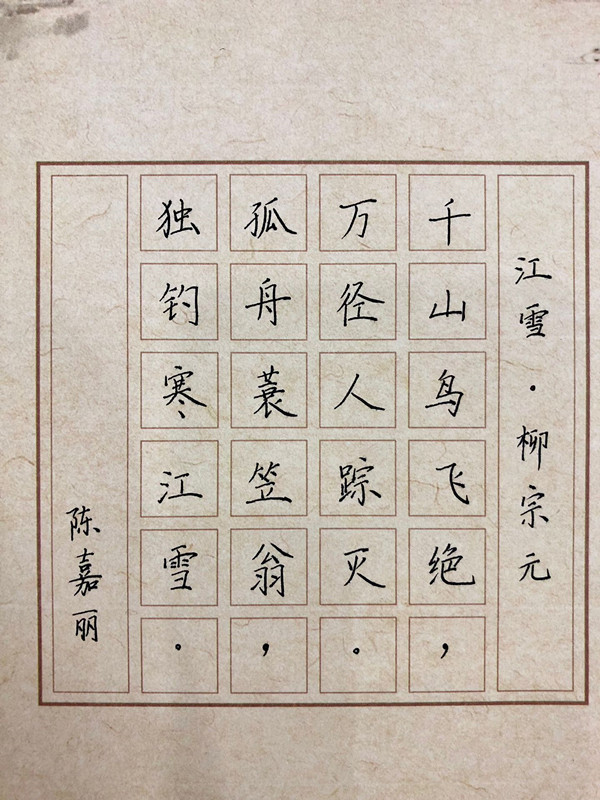 江雪·柳宗元
千山鸟飞绝，
万径人踪灭。
孤舟蓑笠翁，
独钓寒江雪。
陈嘉丽